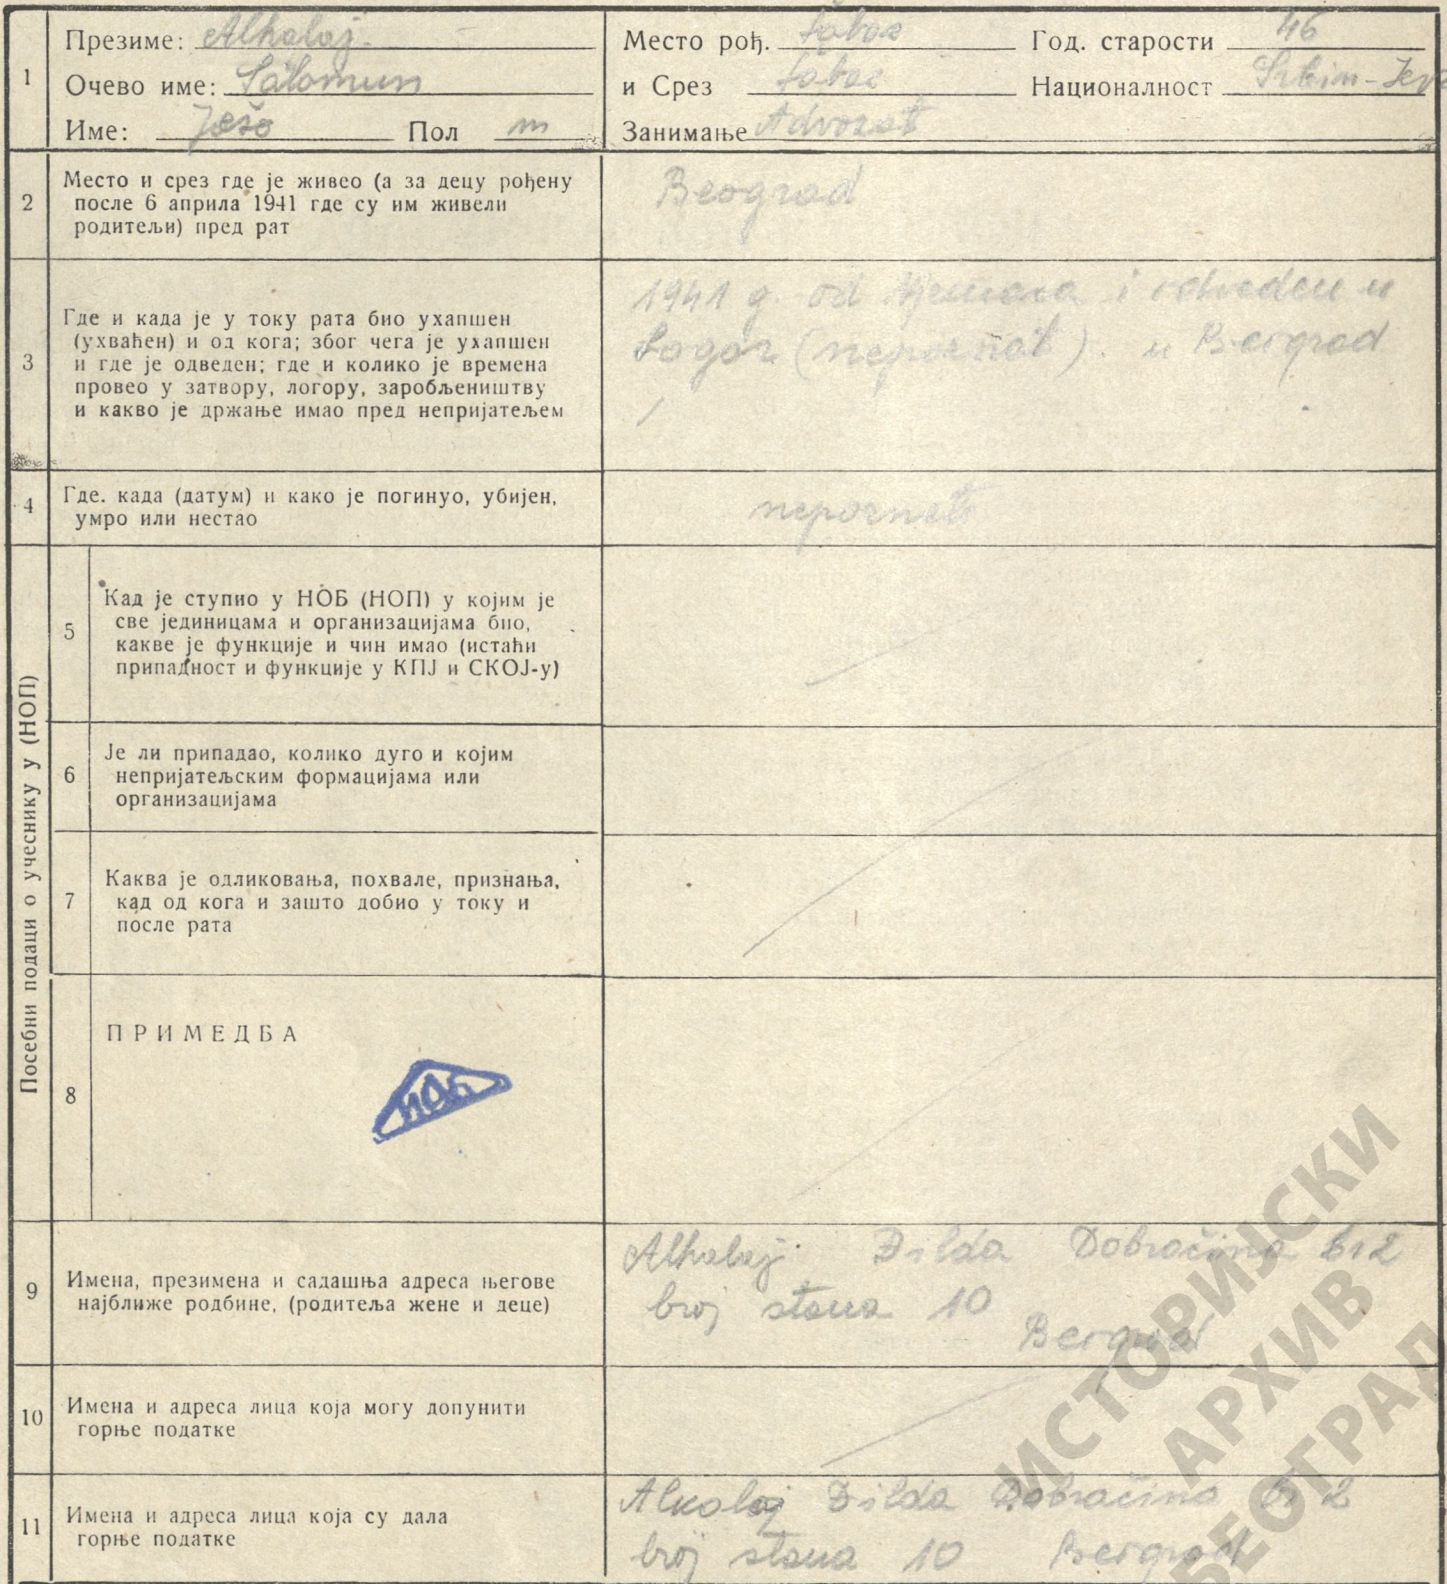 1
Презиме: Alkalaj
Очево име: Salomun
Име: Пол m
Место рођ. Год. старости 46
и Срез Националност Srbin-Jev
Занимање Advokat
2
Место и срез где је живео (а за децу рођену
после 6 априла 1941 где су им живели
родитељи) пред рат
Beograd
3
Где и када је у току рата био ухапшен
(ухваћен) и од кога; због чега је ухапшен
и где је одведен; где и колико је времена
провео у затвору, логору, заробљеништву
и какво је држање имао пред непријатељем
1941 g. od Njemaca i odveden u
logor (nepoznat). u Beograd
4
Где. када (датум) и како је погинуо, убијен,
умро или нестао
nepoznato
Посебни подаци о учеснику у (НОП)
5
Кад је ступио у НОБ (НОП) у којим је
све јединицама и организацијама био,
какве је функције и чин имао (истаћи
припадност и функције у КПЈ и СКОЈ-у)
6
Је ли припадао, колико дуго и којим
непријатељским формацијама или
организацијама
7
Каква је одликовања, похвале, признања,
кад од кога и зашто добио у току и
после рата
8
ПРИМЕДБА
9
Имена, презимена и садашња адреса његове
најближе родбине, (родитеља жене и деце)
Alkalaj Dobračina br 2
broj stana 10
Beograd
10
Имена и адреса лица која могу допунити
горње податке
11
Имена и адреса лица која су дала
горње податке
Alkalaj Dobračina br 2
broj stana 10 Beograd
ИСТОРИЈСКИ
АРХИВ
БЕОГРАД